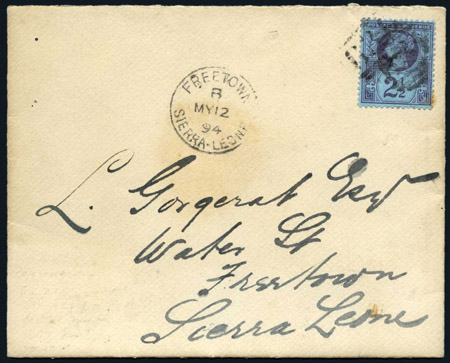 2½
FREETOWN
B
MY 12
94
SIERRA-LEONE
L. Gorgerat Esqr
Water St
Freetown
Sierra Leone